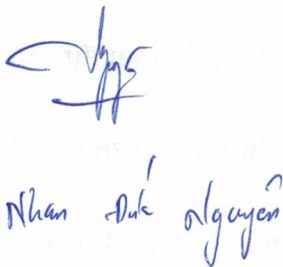 Nhan Đức Nguyễn